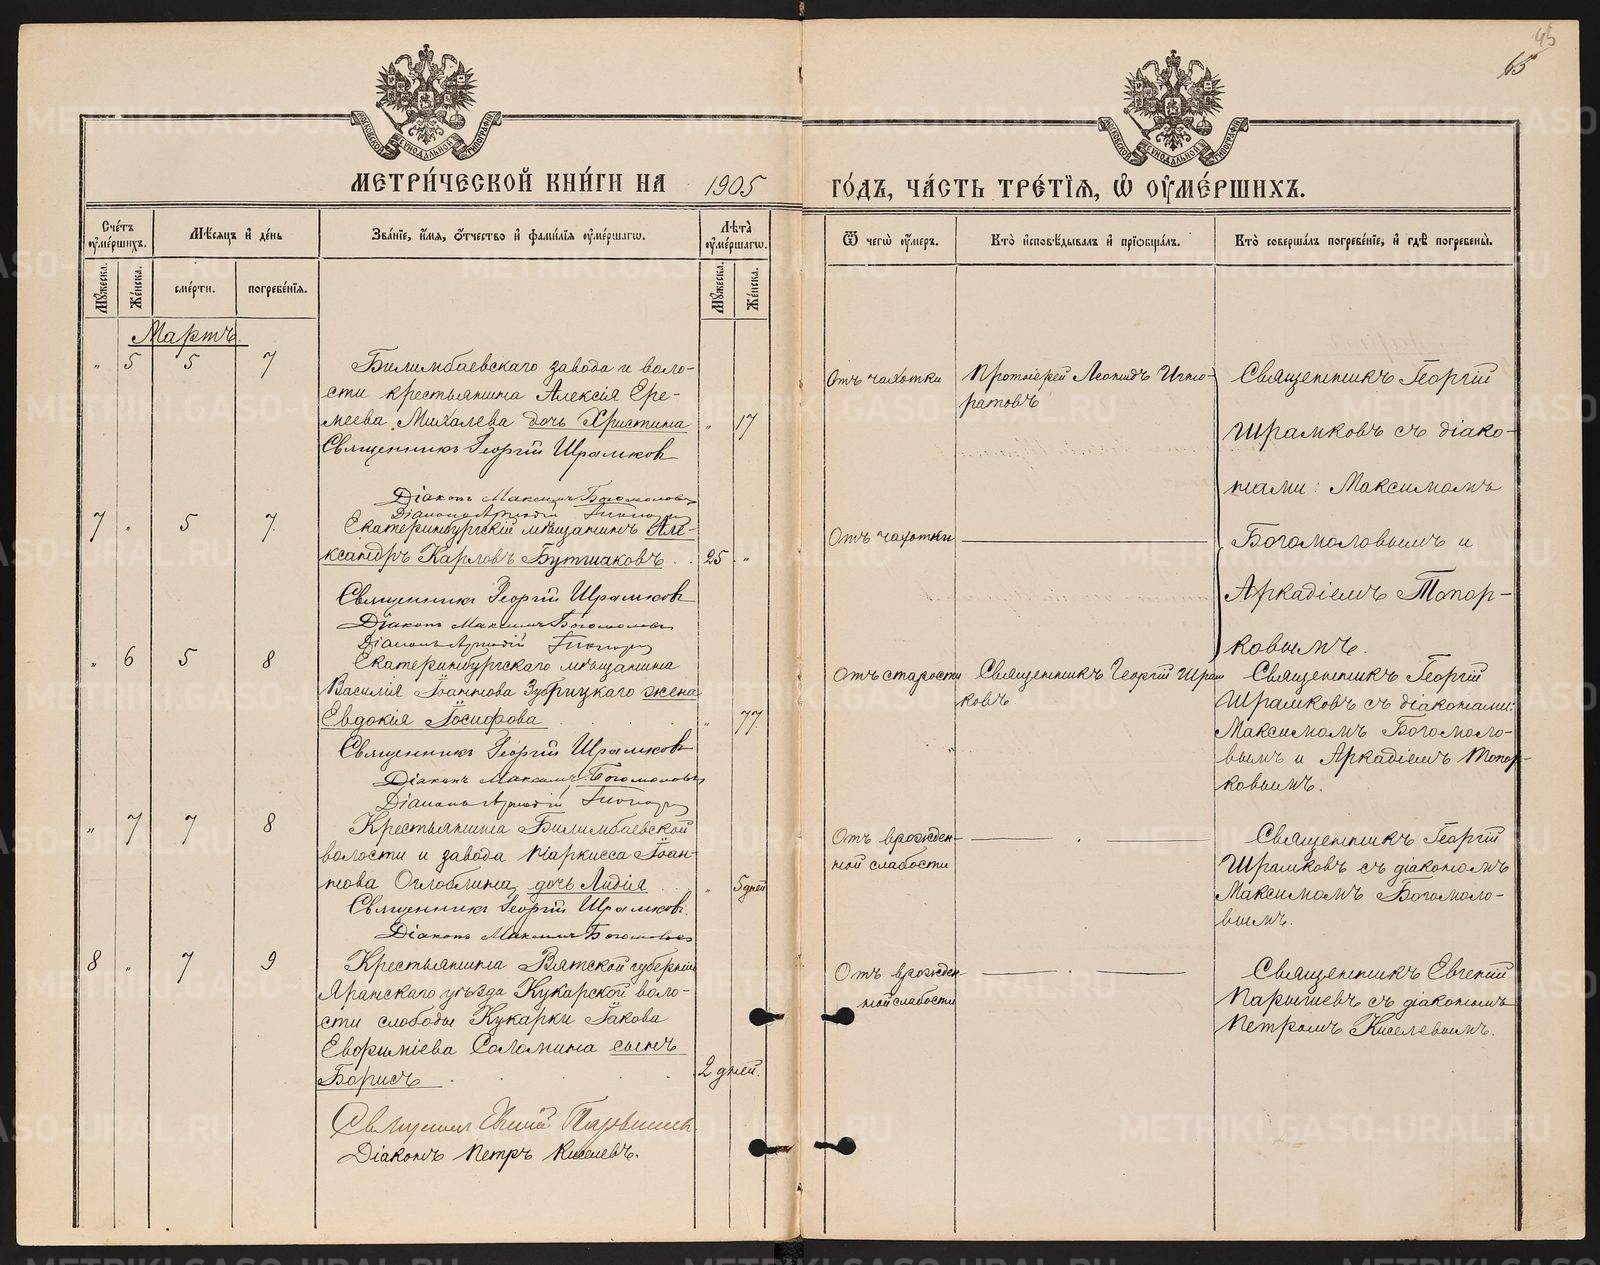 45
65
МЕТРИ́ЧЕСКОЙ КНИ́ГИ НА 1905
ГО́ДЪ, ЧА́СТЬ ТРЕ́ТЇѦ, Ѽ ОУ҆МЕ́РШИХЪ.
Сче́тъ оу҆ме́ршихъ.
Мѣ́сѧцъ и҆ де́нь
Зва́нїе, и҆́мѧ, ѻ҆́тчество и҆ фами́лїѧ оу҆ме́ршагѡ.
Лѣ́та оу҆ме́ршагѡ.
Ѿ чегѡ̀ оу҆́меръ.
Кто̀ и҆сповѣ́дывалъ и҆ прїѡбща́лъ.
Кто̀ соверша́лъ погребе́нїе, и҆ гдѣ̀ погребены̀.
Мꙋ́жеска.
Же́нска.
сме́рти.
погребе́нїѧ.
Мꙋ́жеска.
Же́нска.
Мартъ.
" 5 5 7
Билимбаевскаго завода и воло-
сти крестьянина Алексія Ере-
меева Михалева дочь Христина " 17
Священникъ Георгій Шрамковъ
Діаконъ Максимъ Богомоловъ
Діаконъ Аркадій Топорковъ
Отъ чахотки
Протоіерей Леонидъ Игно-
ратовъ
Священникъ Георгій
Шрамковъ съ діако-
нами: Максимомъ
Богомоловымъ и
Аркадіемъ Топор-
ковымъ.
7 " 5 7
Екатеринбургскій мѣщанинъ Але-
ксандръ Карловъ Бутшаковъ 25 "
Священникъ Георгій Шрамковъ
Діаконъ Максимъ Богомоловъ
Діаконъ Аркадій Топорковъ
Отъ чахотки
" 6 5 8
Екатеринбургскаго мѣщанина
Василія Іоаннова Зубрицкаго жена
Евдокія Іосифова " 77
Священникъ Георгій Шрамковъ
Діаконъ Максимъ Богомоловъ
Діаконъ Аркадій Топорковъ
Отъ старости
Священникъ Георгій Шрам
ковъ.
Священникъ Георгій
Шрамковъ съ діаконами:
Максимомъ Богомоло-
вымъ и Аркадіемъ Топор-
ковымъ.
" 7 7 8
Крестьянина Билимбаевской
волости и завода Наркисса Іоан-
нова Оглоблина дочь Лидія " 5 дней
Священникъ Георгій Шрамковъ.
Діаконъ Максимъ Богомоловъ
Отъ врожден-
ной слабости
Священникъ Георгій
Шрамковъ съ діакономъ
Максимомъ Богомоло-
вымъ.
8 " 7 9
Крестьянина Вятской губерніи
Яранскаго уѣзда Кукарской воло-
сти слободы Кукарки Іакова
Евфиміева Соломина сынъ
Борисъ 2 дней.
Священникъ Евгеній Парышевъ
Діаконъ Петръ Киселевъ.
Отъ врожден-
ной слабости
Священникъ Евгеній
Парышевъ съ діакономъ
Петромъ Киселевымъ.
METRIKI.GASO-URAL.RU